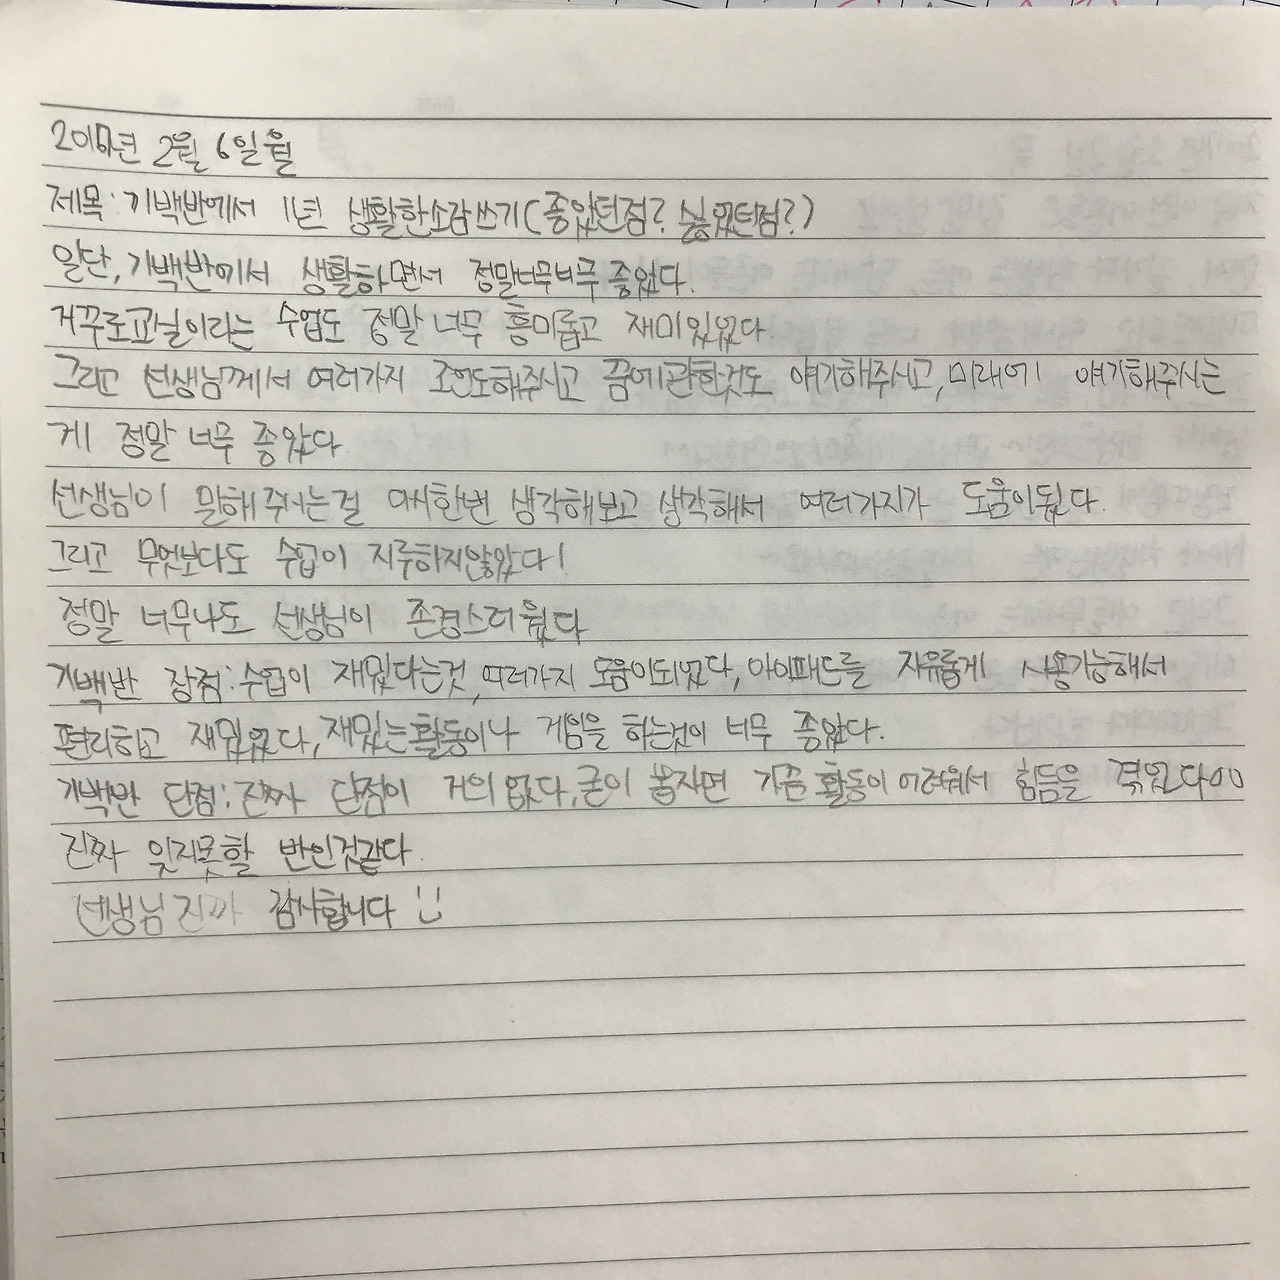 2017년 2월 6일 월
제목: 기백반에서 1년 생활한소감쓰기(좋았던점? 싫었던점?)
일단, 기백반에서 생활하면서 정말너무너무 좋았다.
거꾸로교실이라는 수업도 정말 너무 흥미롭고 재미있었다
그리고 선생님께서 여러가지 조언도해주시고 꿈에관한것도 얘기해주시고, 미래에 얘기해주시는
게 정말 너무 좋았다
선생님이 말해주시는걸 다시한번 생각해보고 생각해서 여러가지가 도움이됬다.
그리고 무엇보다도 수업이 지루하지않았다!
정말 너무나도 선생님이 존경스러웠다
기백반 장점: 수업이 재밌다는것, 여러가지 도움이되었다, 아이패드를 자유롭게 사용가능해서
편리하고 재밌었다, 재밌는활동이나 게임을 하는것이 너무 좋았다.
기백반 단점: 진짜 단점이 거의 없다, 굳이 뽑자면 가끔 활동이 어려워서 힘듬을 겪었다
진짜 잊지못할 반인것같다.
선생님 진짜 감사합니다